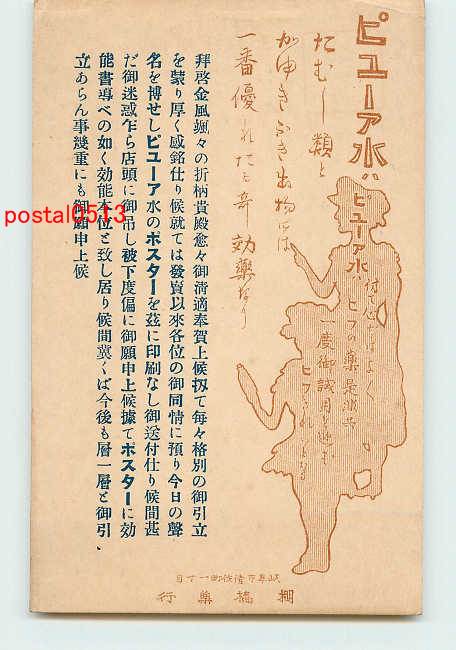 ピューア水ハ
たむし類と
かゆきふき出物には
一番優れたる奇効薬なり
ピューア水ハ ヒフの薬
付て心よく
是非共
一度御試用を廼む
ヒフきれいとなる
拜啓金風颯々の折柄貴殿愈々御清適奉賀上候扨て毎々格別の御引立
を蒙り厚く感銘仕り候就ては發賣以來各位の御同情に預り今日の聲
名を博せしピユーア水のポスターを茲に印刷なし御送付仕り候間甚
だ御迷惑乍ら店頭に御吊し被下度偏に御願申上候據てポスターに効
能書導べの如く効能本位と致し居り候間冀くば今後も層一層と御引、
立あらん事幾重にも御願申上候
岐阜市 町一丁目
棚橋藥行
postal0513